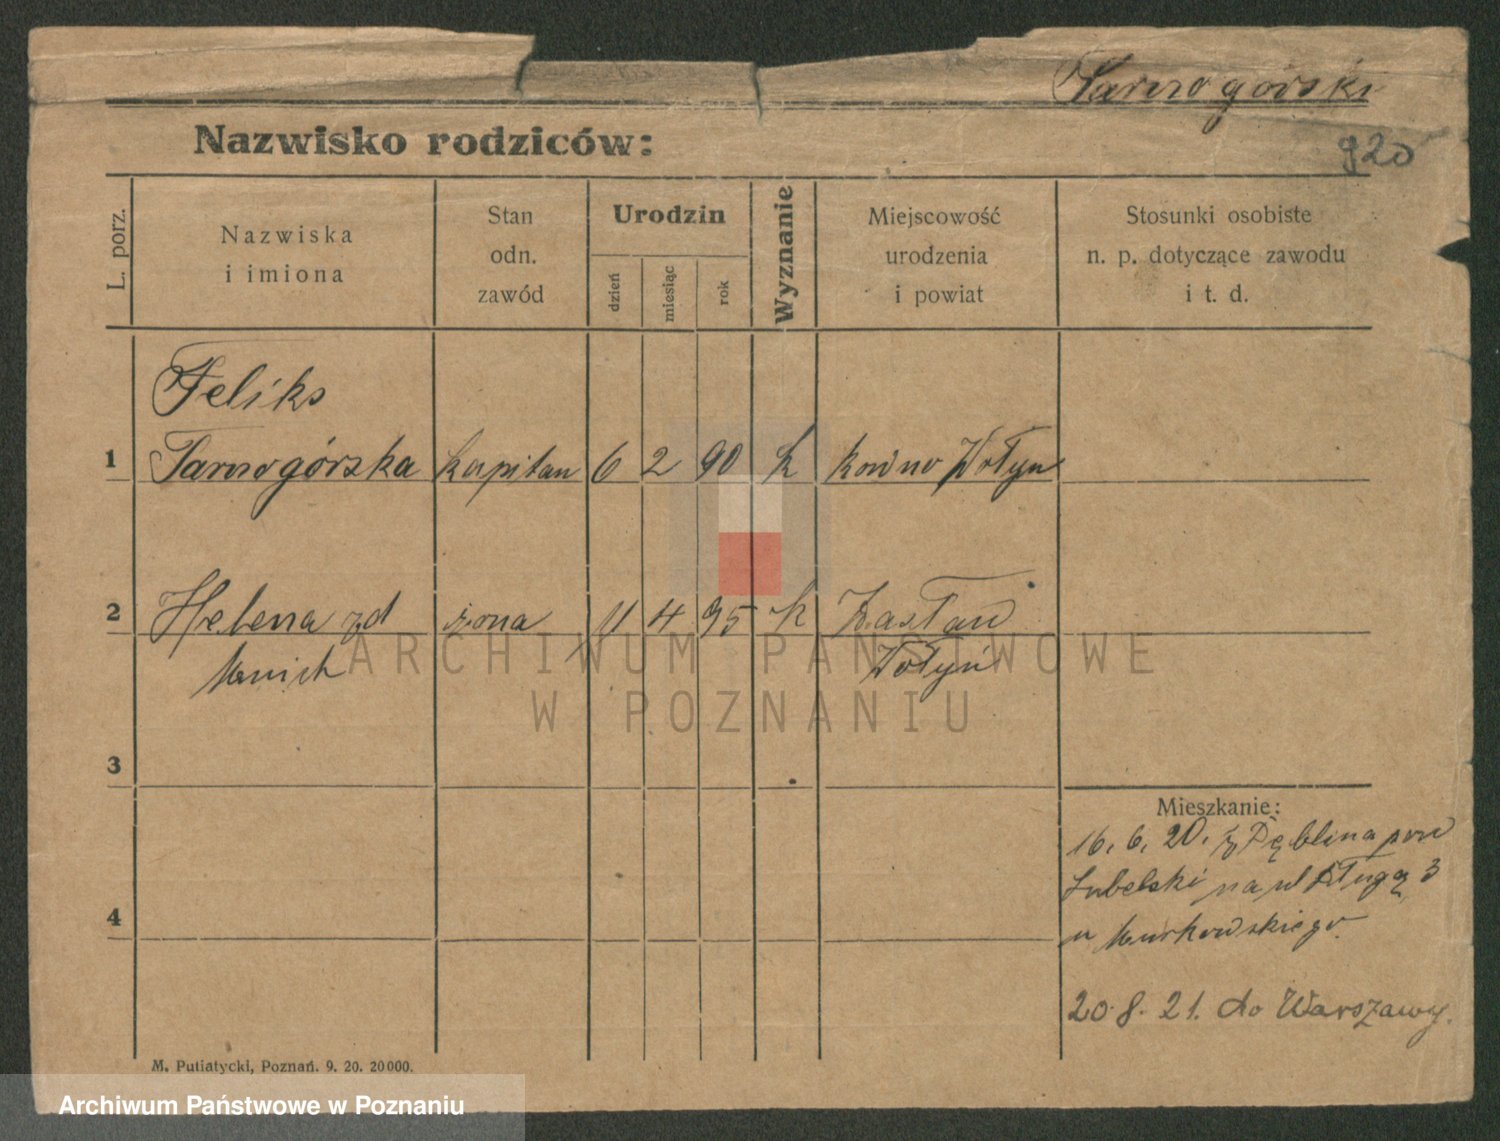 Tarnogórski
Nazwisko rodziców:
920
L. porz.
Nazwiska
i imiona
Stan
odn.
zawód
Urodzin
dzień
miesiąc
rok
Wyznanie
Miejscowość
urodzenia
i powiat
Stosunki osobiste
n. p. dotyczące zawodu
i t. d.
Feliks
1 Tarnogórska kapitan 6 2 90 k Wołyn
2 Helena zd żona 11 4 95 k Zasław
Wołyń
3
4
Mieszkanie:
16. 6. 20. z Dęblina pow
Lubelski na ul Długą 3
u Murkowskiego
20.8.21. do Warszawy.
M. Putiatycki, Poznań. 9. 20. 20000.
ARCHIWUM PAŃSTWOWE
W POZNANIU
Archiwum Państwowe w Poznaniu